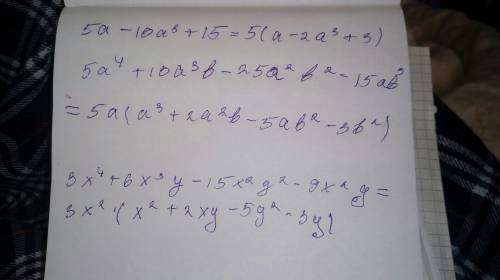 5a - 10a³ + 15 = 5(a - 2a³ + 3)
5a⁴ + 10a³b - 25a²b² - 15ab³
= 5a(a³ + 2a²b - 5ab² - 3b²)
3x⁴ + 6x³y - 15x²y² - 9x²y =
3x² · (x² + 2xy - 5y² - 3y)